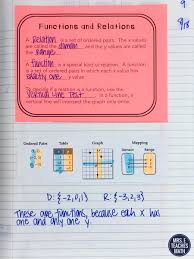 9
9/18
Functions and Relations
A Relation is a set of ordered pairs. The x values
are called the domain and the y values are called
the range.
A function is a special kind of relation. A function
is a set of ordered pairs in which each x value has
exactly one y value.
To decide if a relation is a function, use the
Vertical Line Test. In a function, a
vertical line will intersect the graph only once.
Ordered Pairs Table Graph Mapping
D: {-2,0,1} R: {-3,2,3}
These are functions, because each x has
one and only one y.
MRS. E
TEACHES
MATH